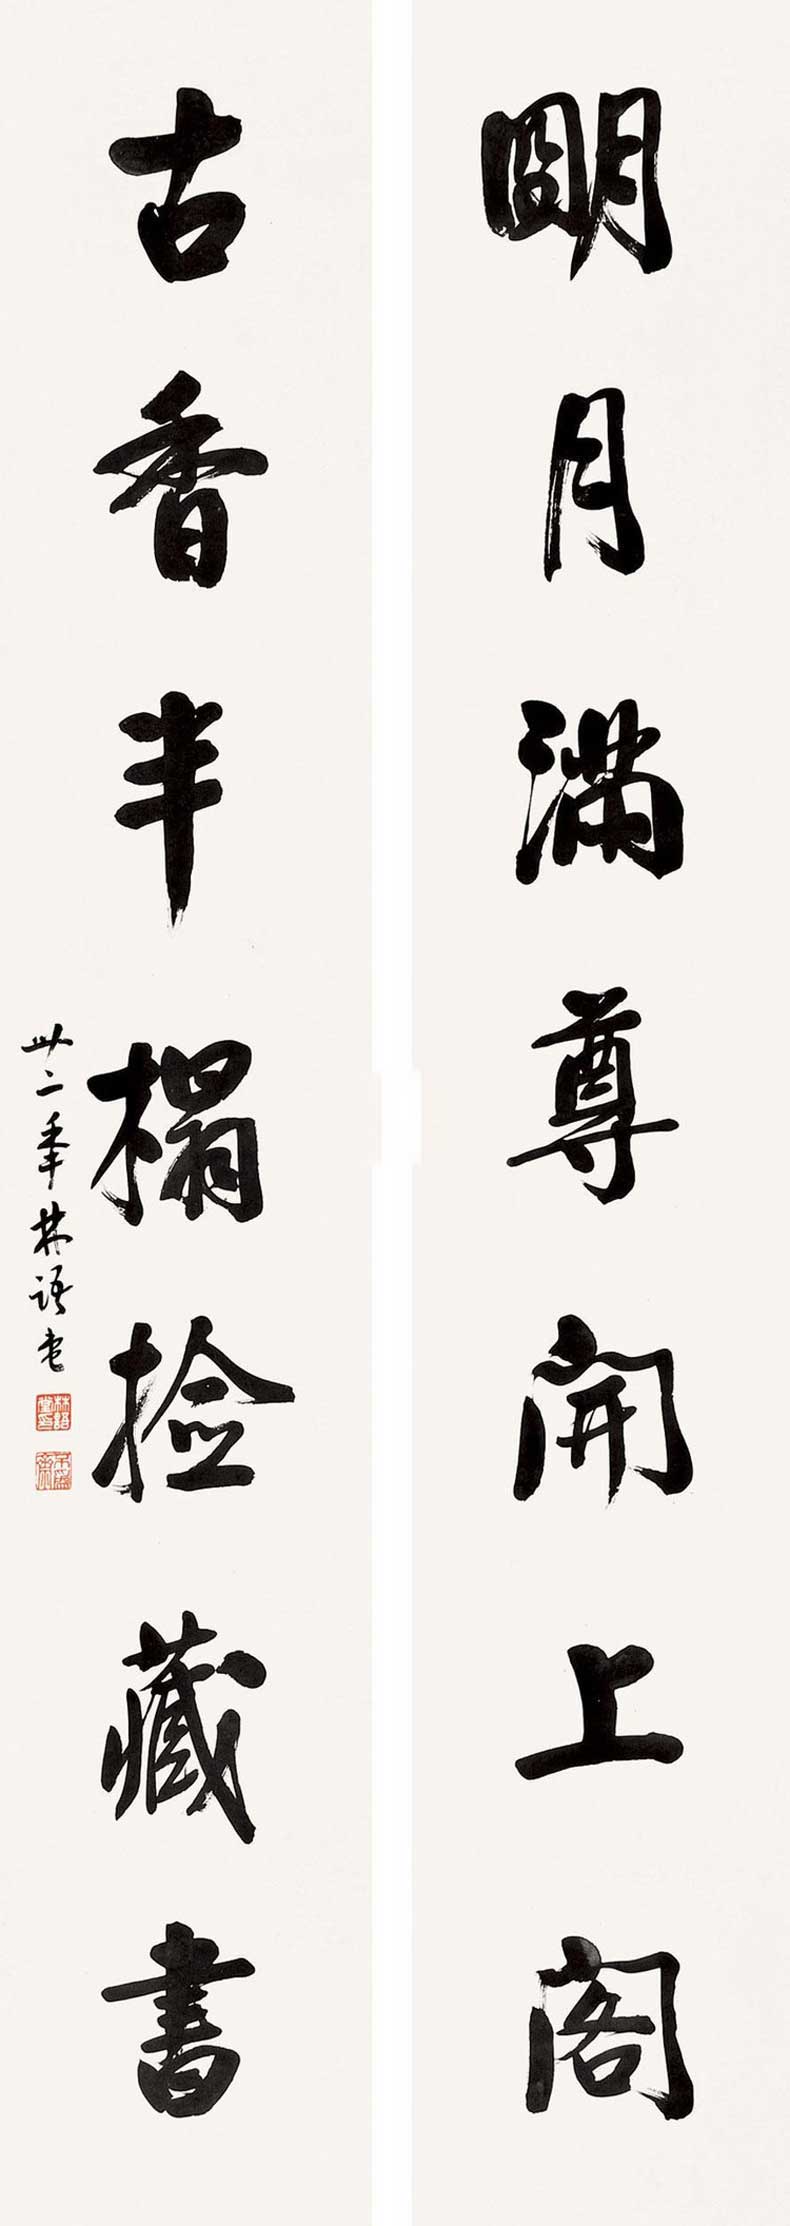 明月满尊開上阁
古香半榻捡藏書
卅二年林语堂
林語堂印